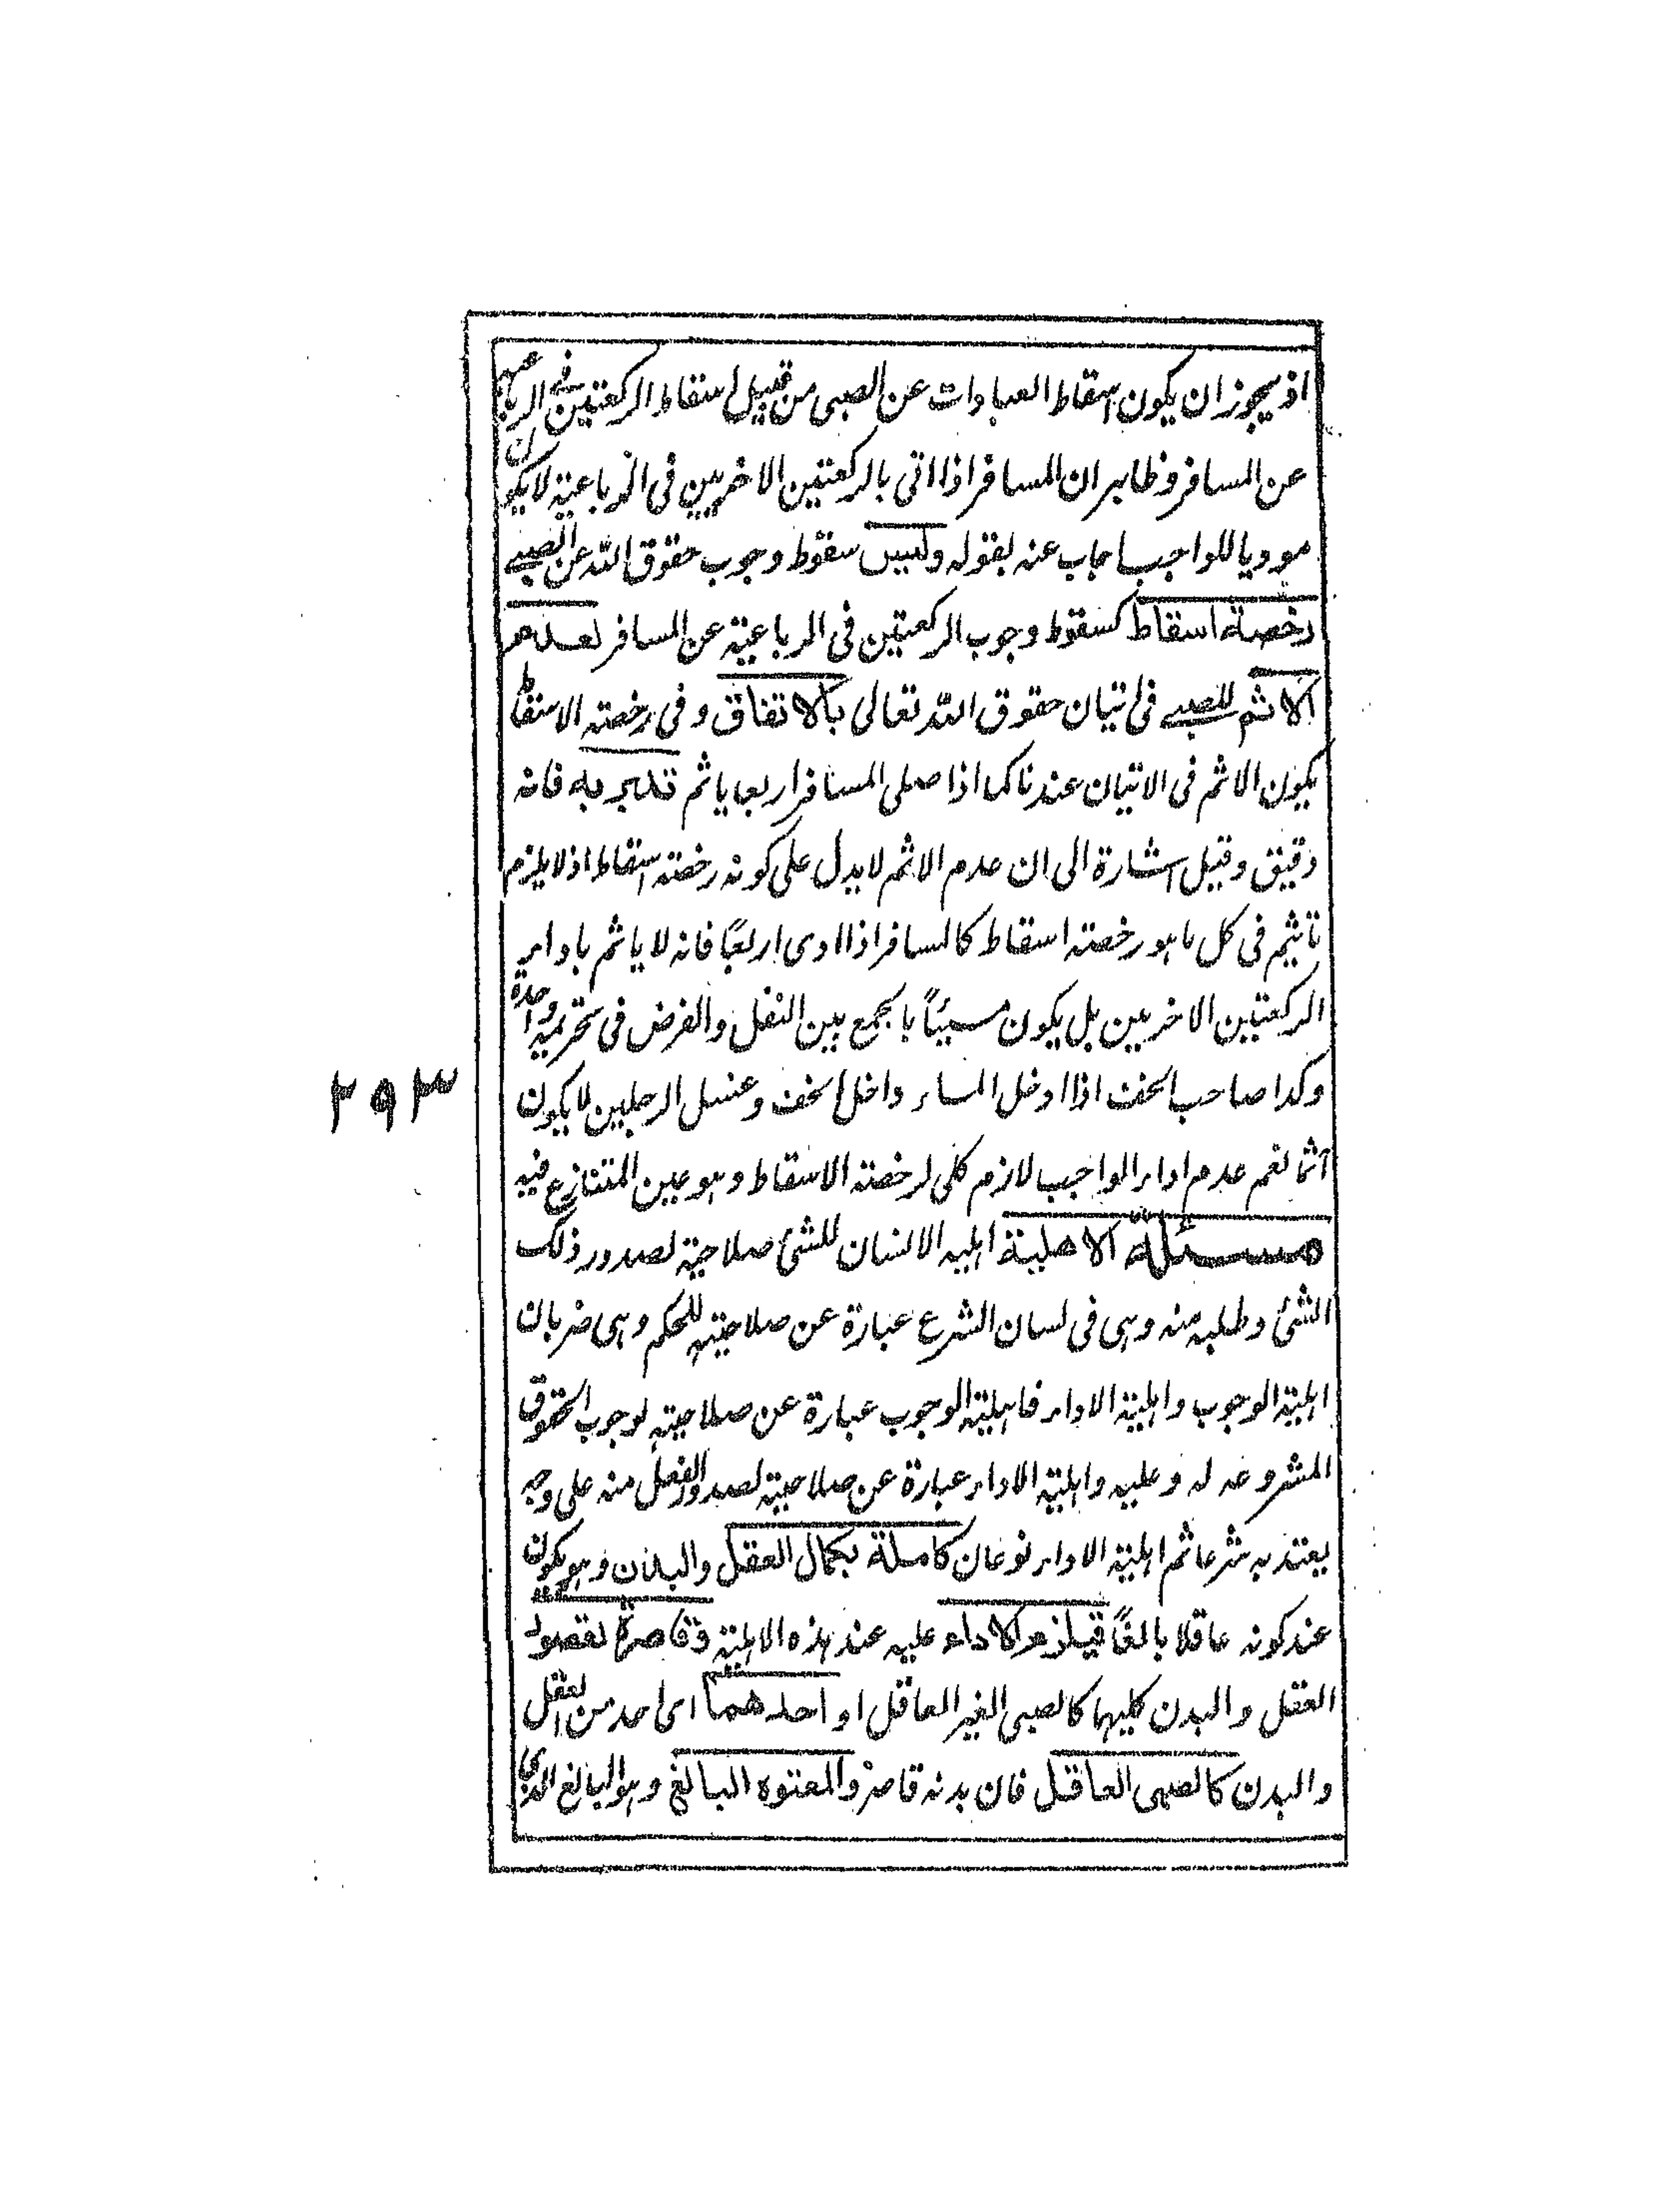 اذ يجوز ان يكون اسقاط العبادات عن الصبى من قبيل اسقاط الركعتين فى الرباعية
عن المسافر وظاهر ان المسافر اذا اتى بالركعتين الاخريين فى الرباعية لا يكون
موديا للواجب اجاب عنه بقوله وليس سقوط وجوب حقوق الله عن الصبے
رخصة اسقاط كسقوط وجوب الركعتين فى الرباعية عن المسافر لعدم
الاثم للصبے فى اتيان حقوق الله تعالى بالاتفاق وفى رخصة الاسقاط
يكون الاثم فى الاتيان عندنا كما اذا صلى المسافر اربعا ياثم تدبر به فانه
دقيق وقيل اشارة الى ان عدم الاثم لا يدل على كونه رخصة اسقاط اذ لا يلزم
تاثيم فى كل ما هو رخصة اسقاط كالمسافر اذا ادى اربعًا فانه لا ياثم باداء
الركعتين الاخريين بل يكون مسيئًا بالجمع بين النفل والفرض فى تحريمة واحدة
وكذا صاحب الخف اذا ادخل الماء داخل الخف وغسل الرجلين لا يكون
آثما نعم عدم اداء الواجب لازم كلى لرخصة الاسقاط وهو عين المتنازع فيه
مسئلة الاهلية اهلية الانسان للشئ صلاحية لصدور ذلك
الشئ وطلبه منه وهى فى لسان الشرع عبارة عن صلاحيته للحكم وهى ضربان
اهلية الوجوب واهلية الاداء فاهلية الوجوب عبارة عن صلاحيته لوجوب الحقوق
المشروعه له وعليه واهلية الاداء عبارة عن صلاحية لصدور الفعل منه على وجه
يعتد به شرعا ثم اهلية الاداء نوعان كاملة بكمال العقل والبدن وهو يكون
عند كونه عاقلا بالغًا فيلزم الاداء عليه عند هذه الاهلية وقاصرة لقصور
العقل والبدن كليهما كالصبى الغير العاقل او احدهما اى احد من العقل
والبدن كالصبى العاقل فان بدنه قاصر والمعتوه البالغ وهو البالغ الذى
٢٩٣